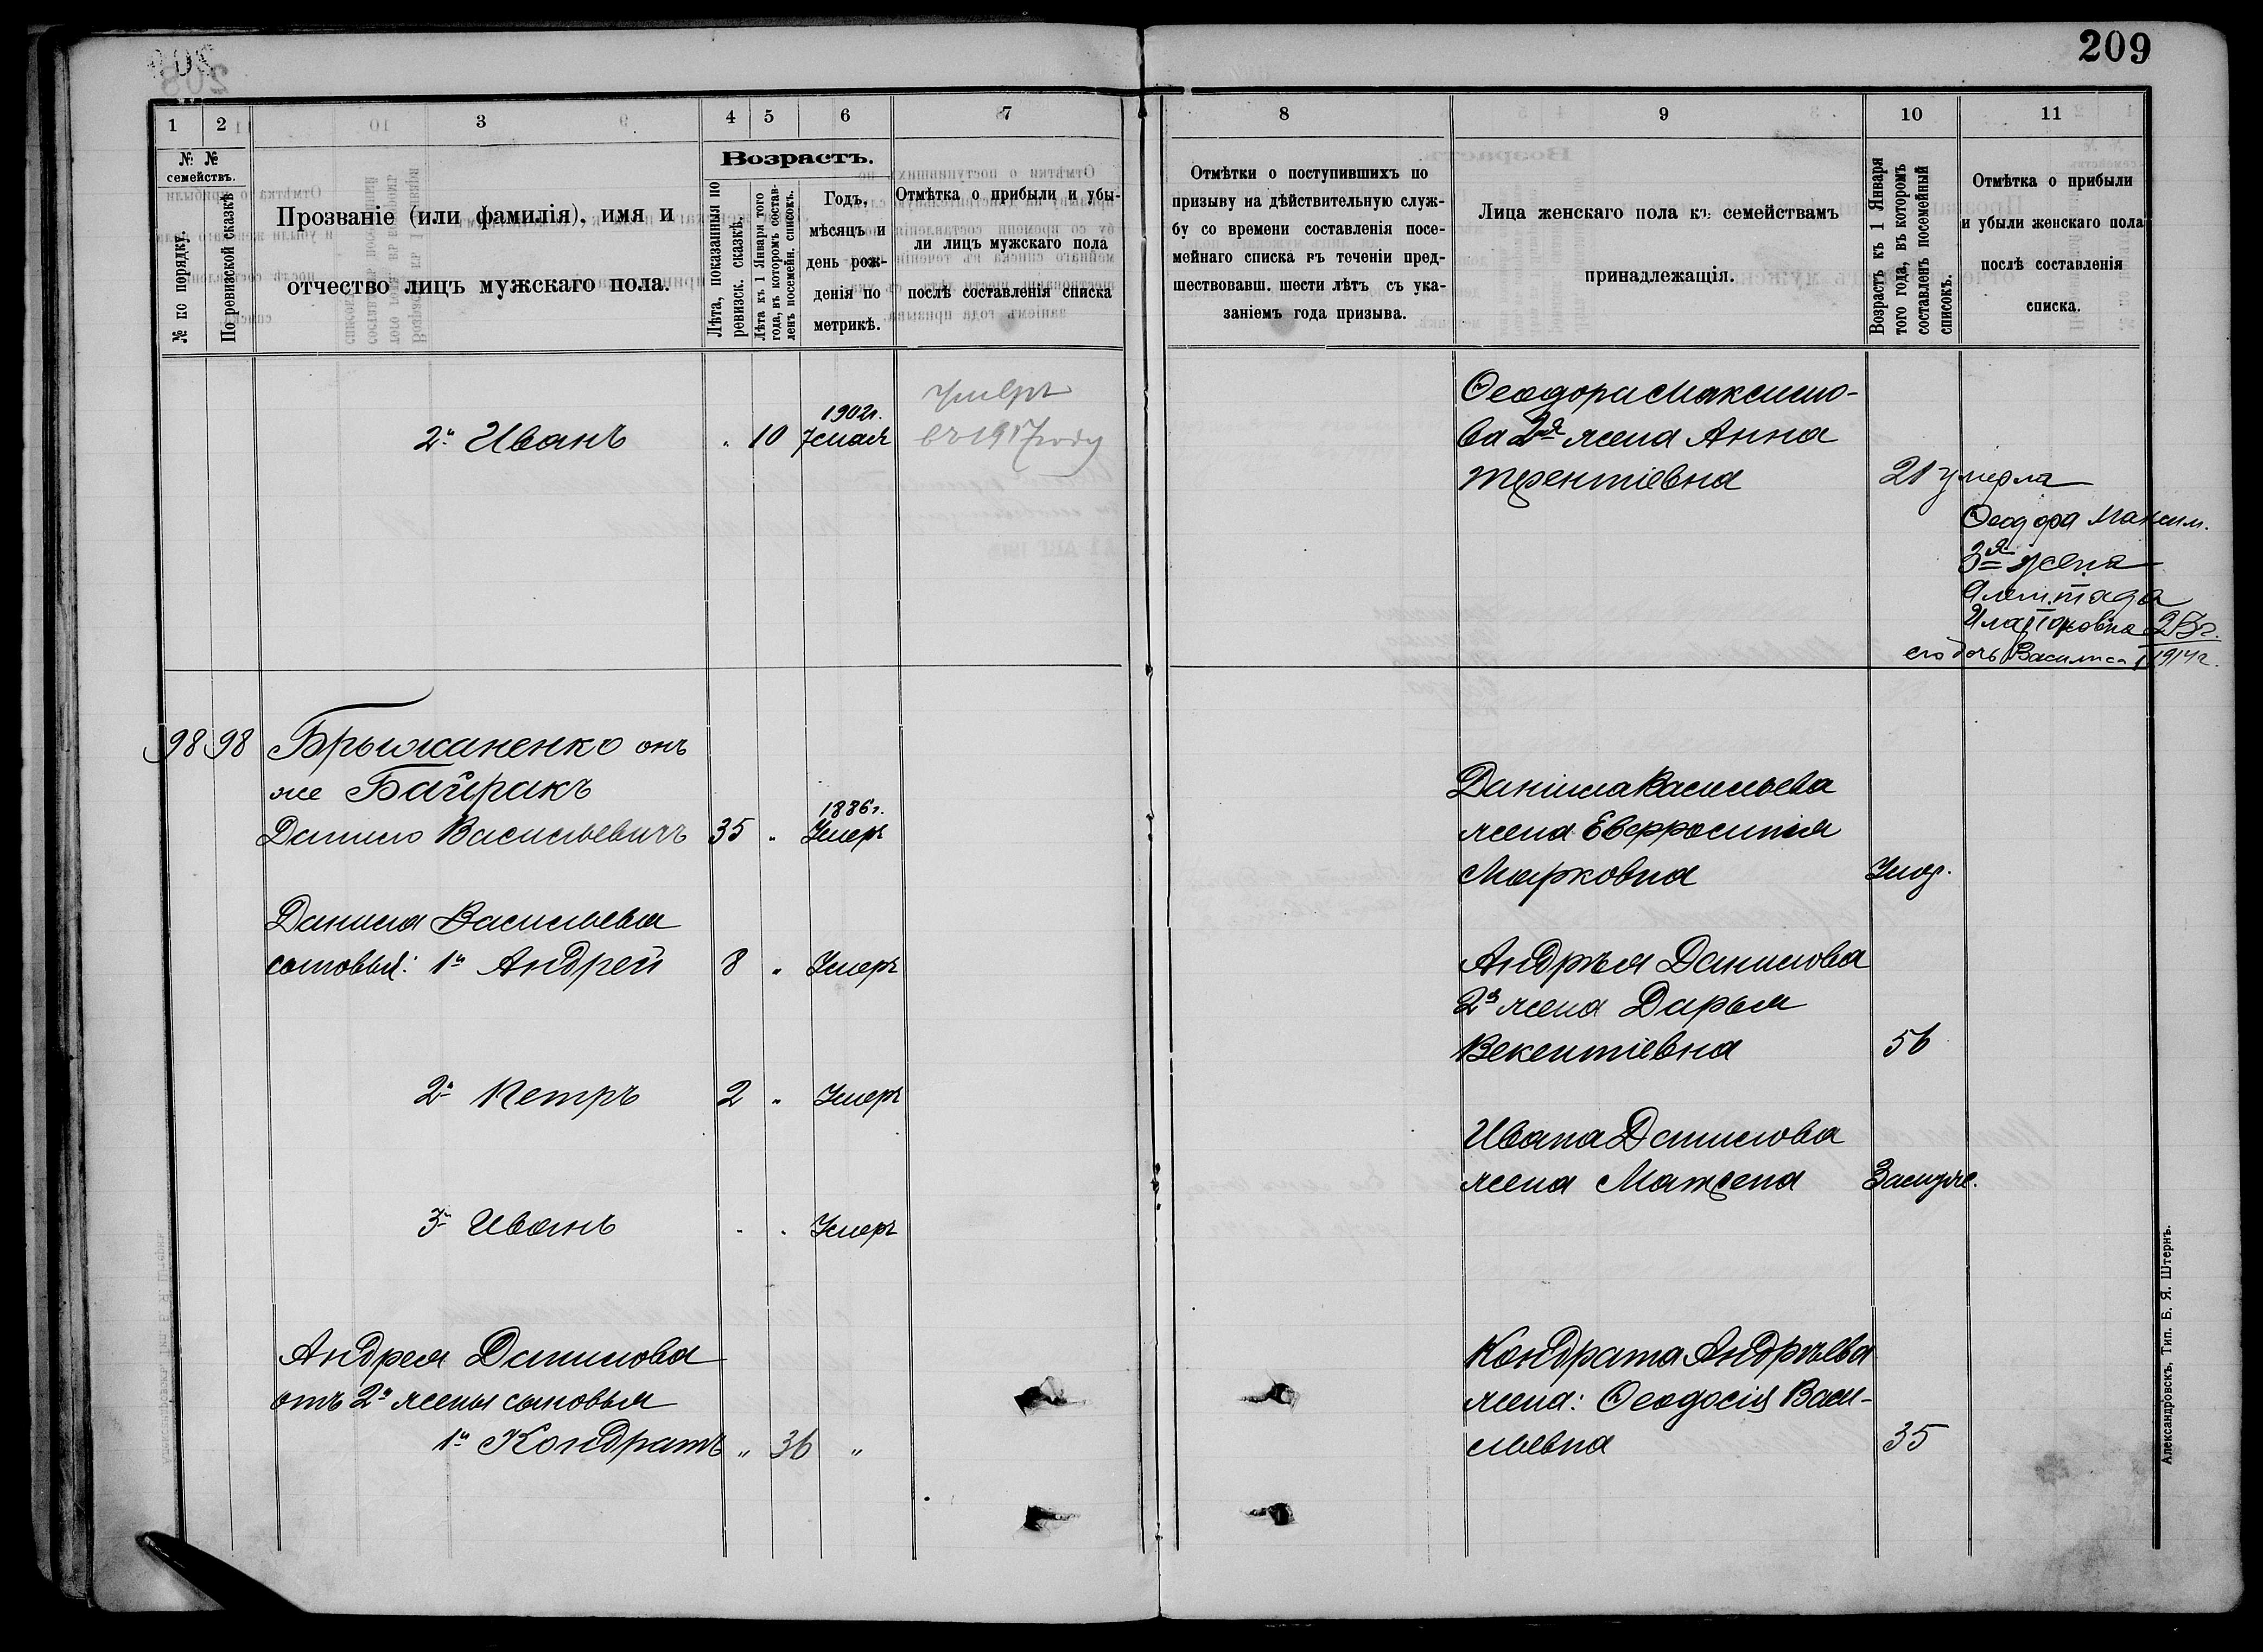 209
1 2 3 4 5 6 7
№ № семействъ.
№ по порядку.
По ревизской сказкѣ
Прозваніе (или фамилія), имя и
отчество лицъ мужскаго пола.
Возрастъ.
Лѣта, показанныя по
ревизск. сказкѣ.
Лѣта къ 1 Января того
года, въ которомъ состав-
ленъ посемейн. списокъ.
Годъ,
мѣсяцъ и
день рож-
денія по
метрикѣ.
Отмѣтка о прибыли и убы-
ли лицъ мужскаго пола
послѣ составленія списка
2й Иванъ " 10 1902г. 7 мая
умеръ
въ 1917 году
98 98 Брыжаненко онъ
же Байракъ
Данило Васильевичъ 35 " 1886г. Умеръ
Данила Васильева
сыновья: 1й Андрей 8 " Умеръ
2й Петръ 2 " Умеръ
3й Иванъ " " Умеръ
Андрея Данилова
отъ 2й жены сыновья
1й Кондратъ " 36 "
8 9 10 11
Отмѣтки о поступившихъ по
призыву на дѣйствительную служ-
бу со времени составленія посе-
мейнаго списка въ теченіи пред-
шествовавш. шести лѣтъ съ ука-
заніемъ года призыва.
Лица женскаго пола къ семействамъ
принадлежащія.
Возрастъ къ 1 Января
того года, въ которомъ
составленъ посемейный
списокъ.
Отмѣтка о прибыли
и убыли женскаго пола
послѣ составленія
списка.
Ѳеодора Максимо-
ва 2я жена Анна
Терентіевна 21 умерла
Ѳеодора Максим.
3я жена
его дочь Василиса 1914г.
Даніила Васильева
жена Евфросинія
Марковна Умер.
Андрѣя Данилова
2я жена Дарья
Векентіевна 56
Ивана Данилова
жена Матрена Замуже.
Кондрата Андрѣева
жена: Ѳеодосія Васи-
льевна 35
Александровскъ, Тип. Б. Я. Штернъ.